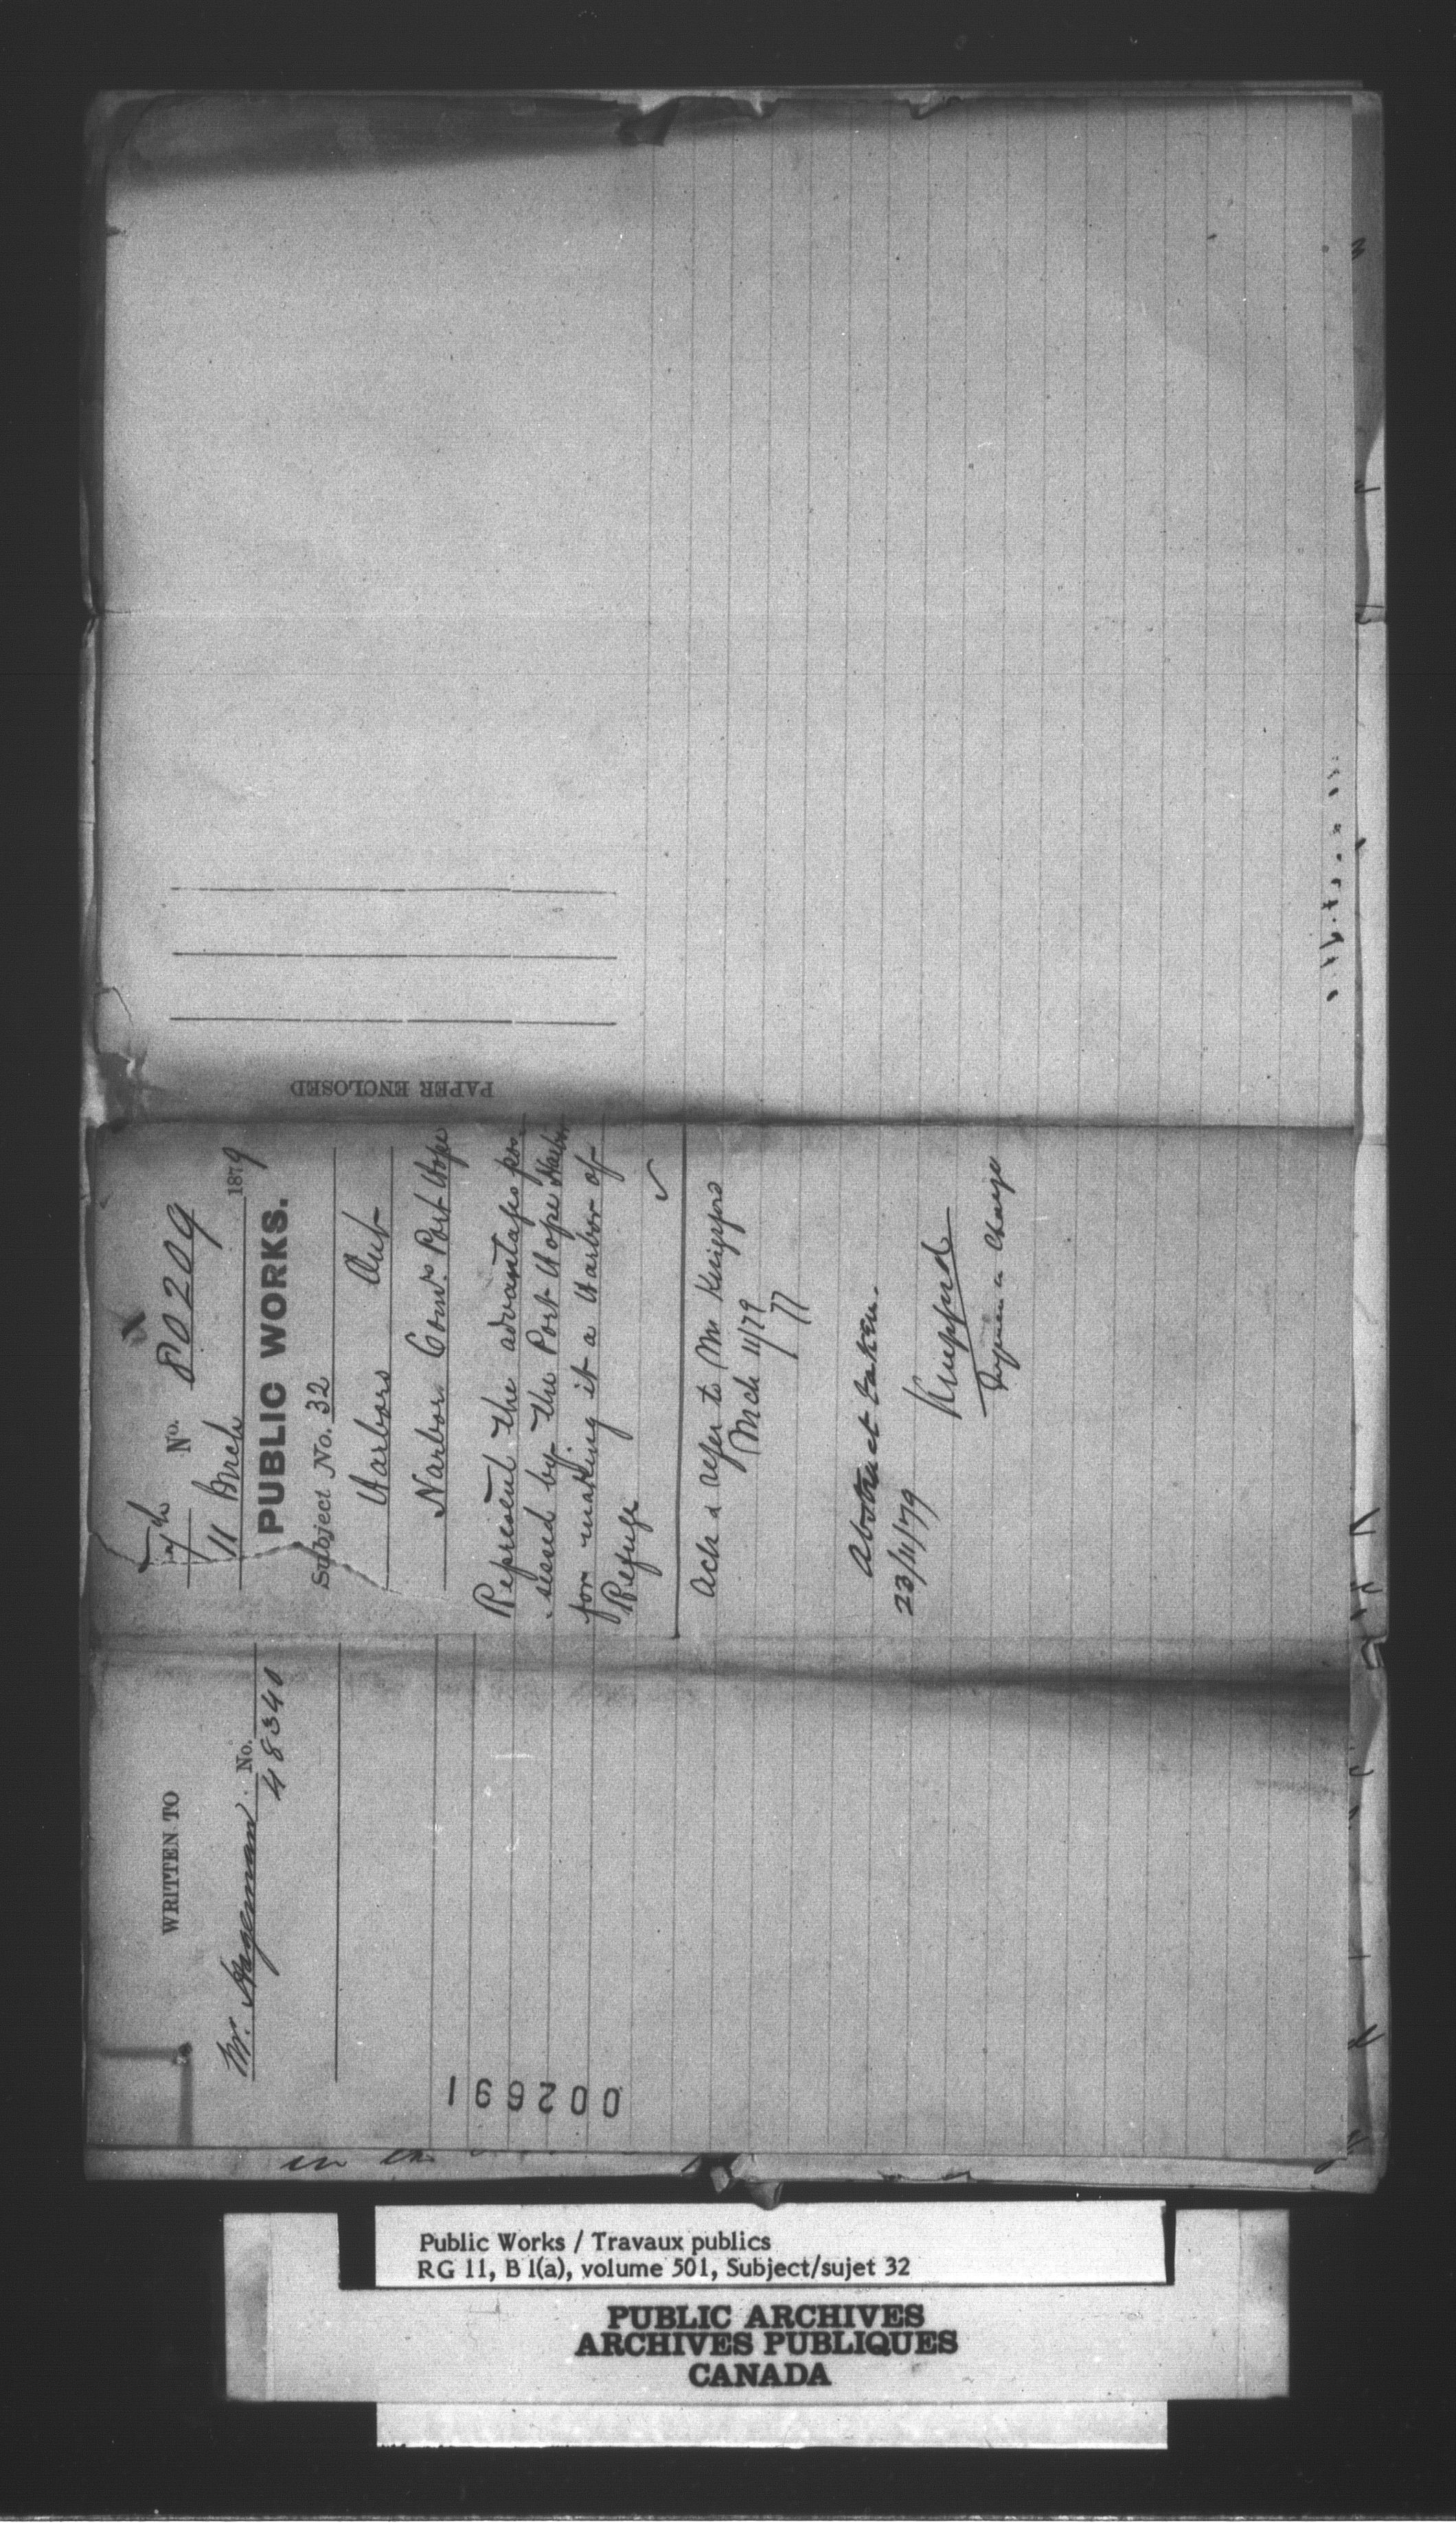 No. 80209
11 Mch 1879
PUBLIC WORKS.
Subject No. 32
Harbors Ont
Harbor Comrs. Port Hope
Represent the advantages pos-
sessed by the Port Hope Harbor
for making it a Harbor of
Refuge
Ack & refer to Mr Kingsford
Mch 11/79
77
Abstract taken.
23/4/79
Kingsford
Engineer in Charge
PAPER ENCLOSED
WRITTEN TO
Mr. Hagerman No.
48340
002691
in the
Public Works / Travaux publics
RG 11, B 1(a), volume 501, Subject/sujet 32
PUBLIC ARCHIVES
ARCHIVES PUBLIQUES
CANADA